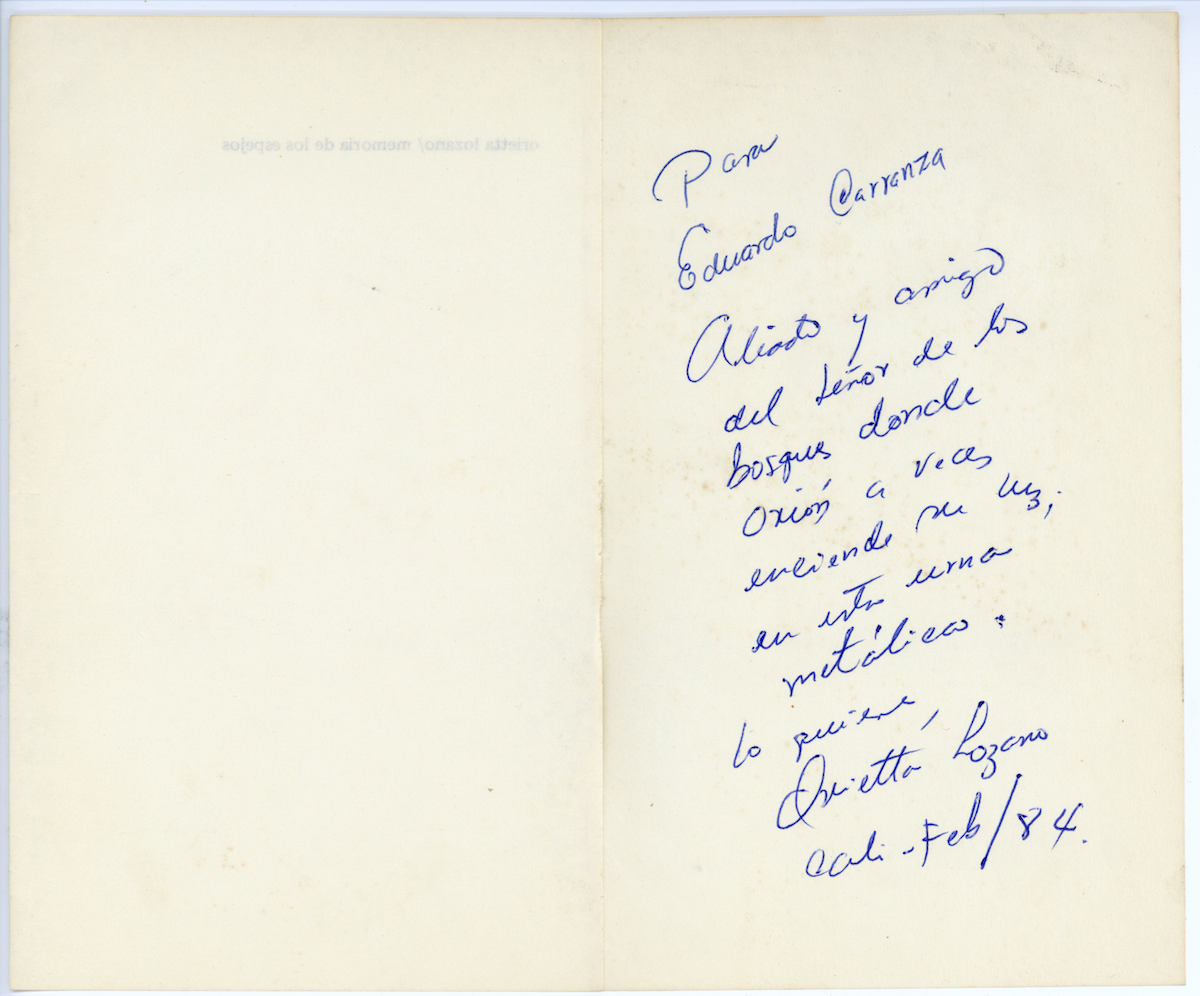 orietta lozano/ memoria de los espejos
Para
Eduardo Carranza
Aliado y amigo
del señor de los
bosques donde
Orión a veces
enciende su luz;
en esta urna
metálica.
lo quiere,
Orietta Lozano
Cali-Feb/84.